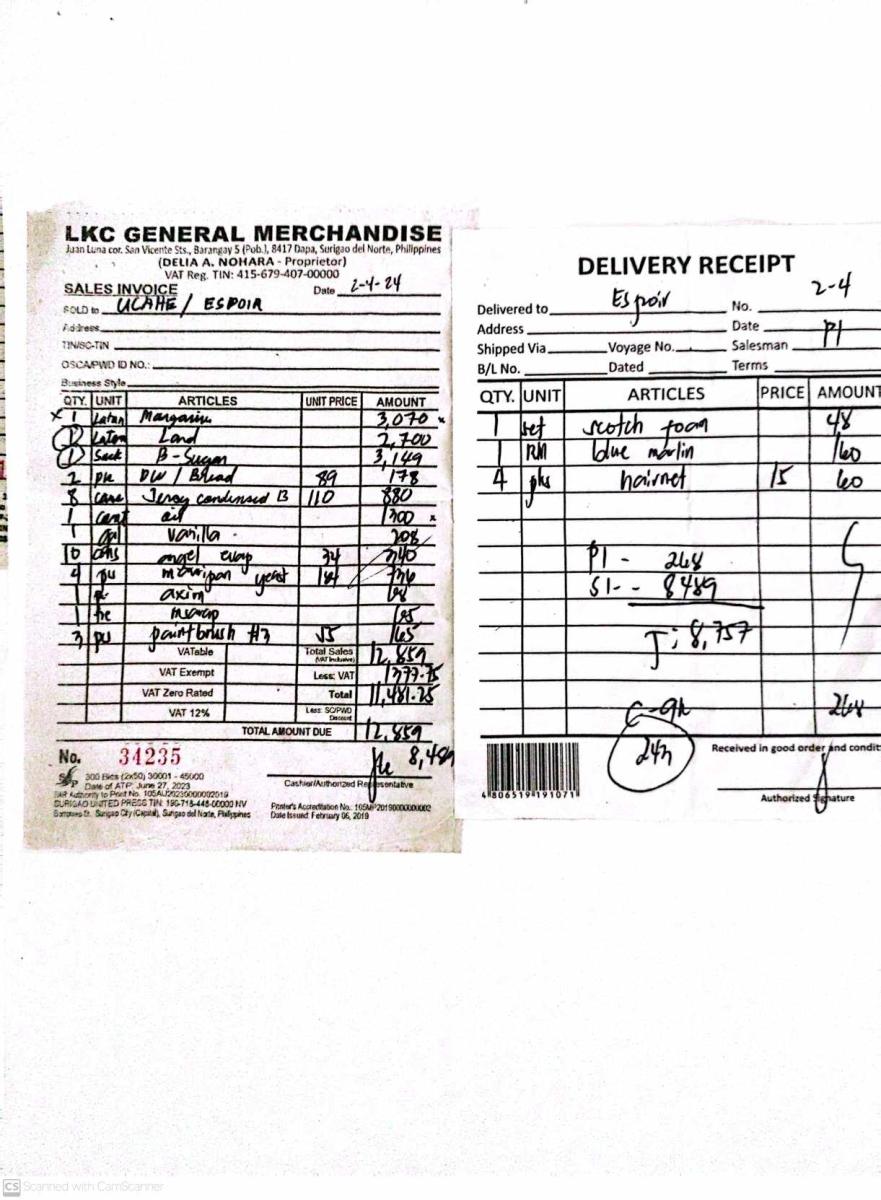 LKC GENERAL MERCHANDISE
Juan Luna cor. San Vicente Sts., Barangay 5 (Pob.), 8417 Dapa, Surigao del Norte, Philippines
(DELIA A. NOHARA - Proprietor)
VAT Reg. TIN: 415-679-407-00000
SALES INVOICE Date 2-4-24
SOLD to UCAHE / ESPOIR
Address
TIN/SC-TIN
OSCA/PWD ID NO.:
Business Style
QTY. UNIT ARTICLES UNIT PRICE AMOUNT
x 1 Latan Margarine 3,070 x
1 Laton Lard 2,700
1 Sack B-Sugar 3,149
2 pk DW / Bread 89 178
8 cane Jersy condensed B 110 880
1 cont oil 1300 x
1 gal vanilla 208
10 cans angel evap 34 340
4 pu yeast 184 736
1 axim
1
3 pu paintbrush #3 55 165
VATable Total Sales (VAT Inclusive) 12,859
VAT Exempt Less: VAT 1377.75
VAT Zero Rated Total 11,481.25
VAT 12% Less: SC/PWD Discount
TOTAL AMOUNT DUE 12,859
No. 34235 8,489
Cashier/Authorized Representative
300 Bkls (2x50) 30001 - 45000
Date of ATP: June 27, 2023
BIR Authority to Print No. 105AU20230000002019
SURIGAO UNITED PRESS TIN: 190-718-448-00000 NV
Borromeo St. Surigao City (Capital), Surigao del Norte, Philippines
Printer's Accreditation No.: 105MP20190000000002
Date Issued: February 06, 2019
DELIVERY RECEIPT
2-4
Delivered to Espoir No.
Address Date P1
Shipped Via Voyage No. Salesman
B/L No. Dated Terms
QTY. UNIT ARTICLES PRICE AMOUNT
1 set scotch foam 48
1 RM blue marlin 160
4 pks hairnet 15 60
P1 - 268
S1-- 8489
T; 8,757
268
24h
Received in good order and condit
4 806519 191071
Authorized Signature
CS Scanned with CamScanner